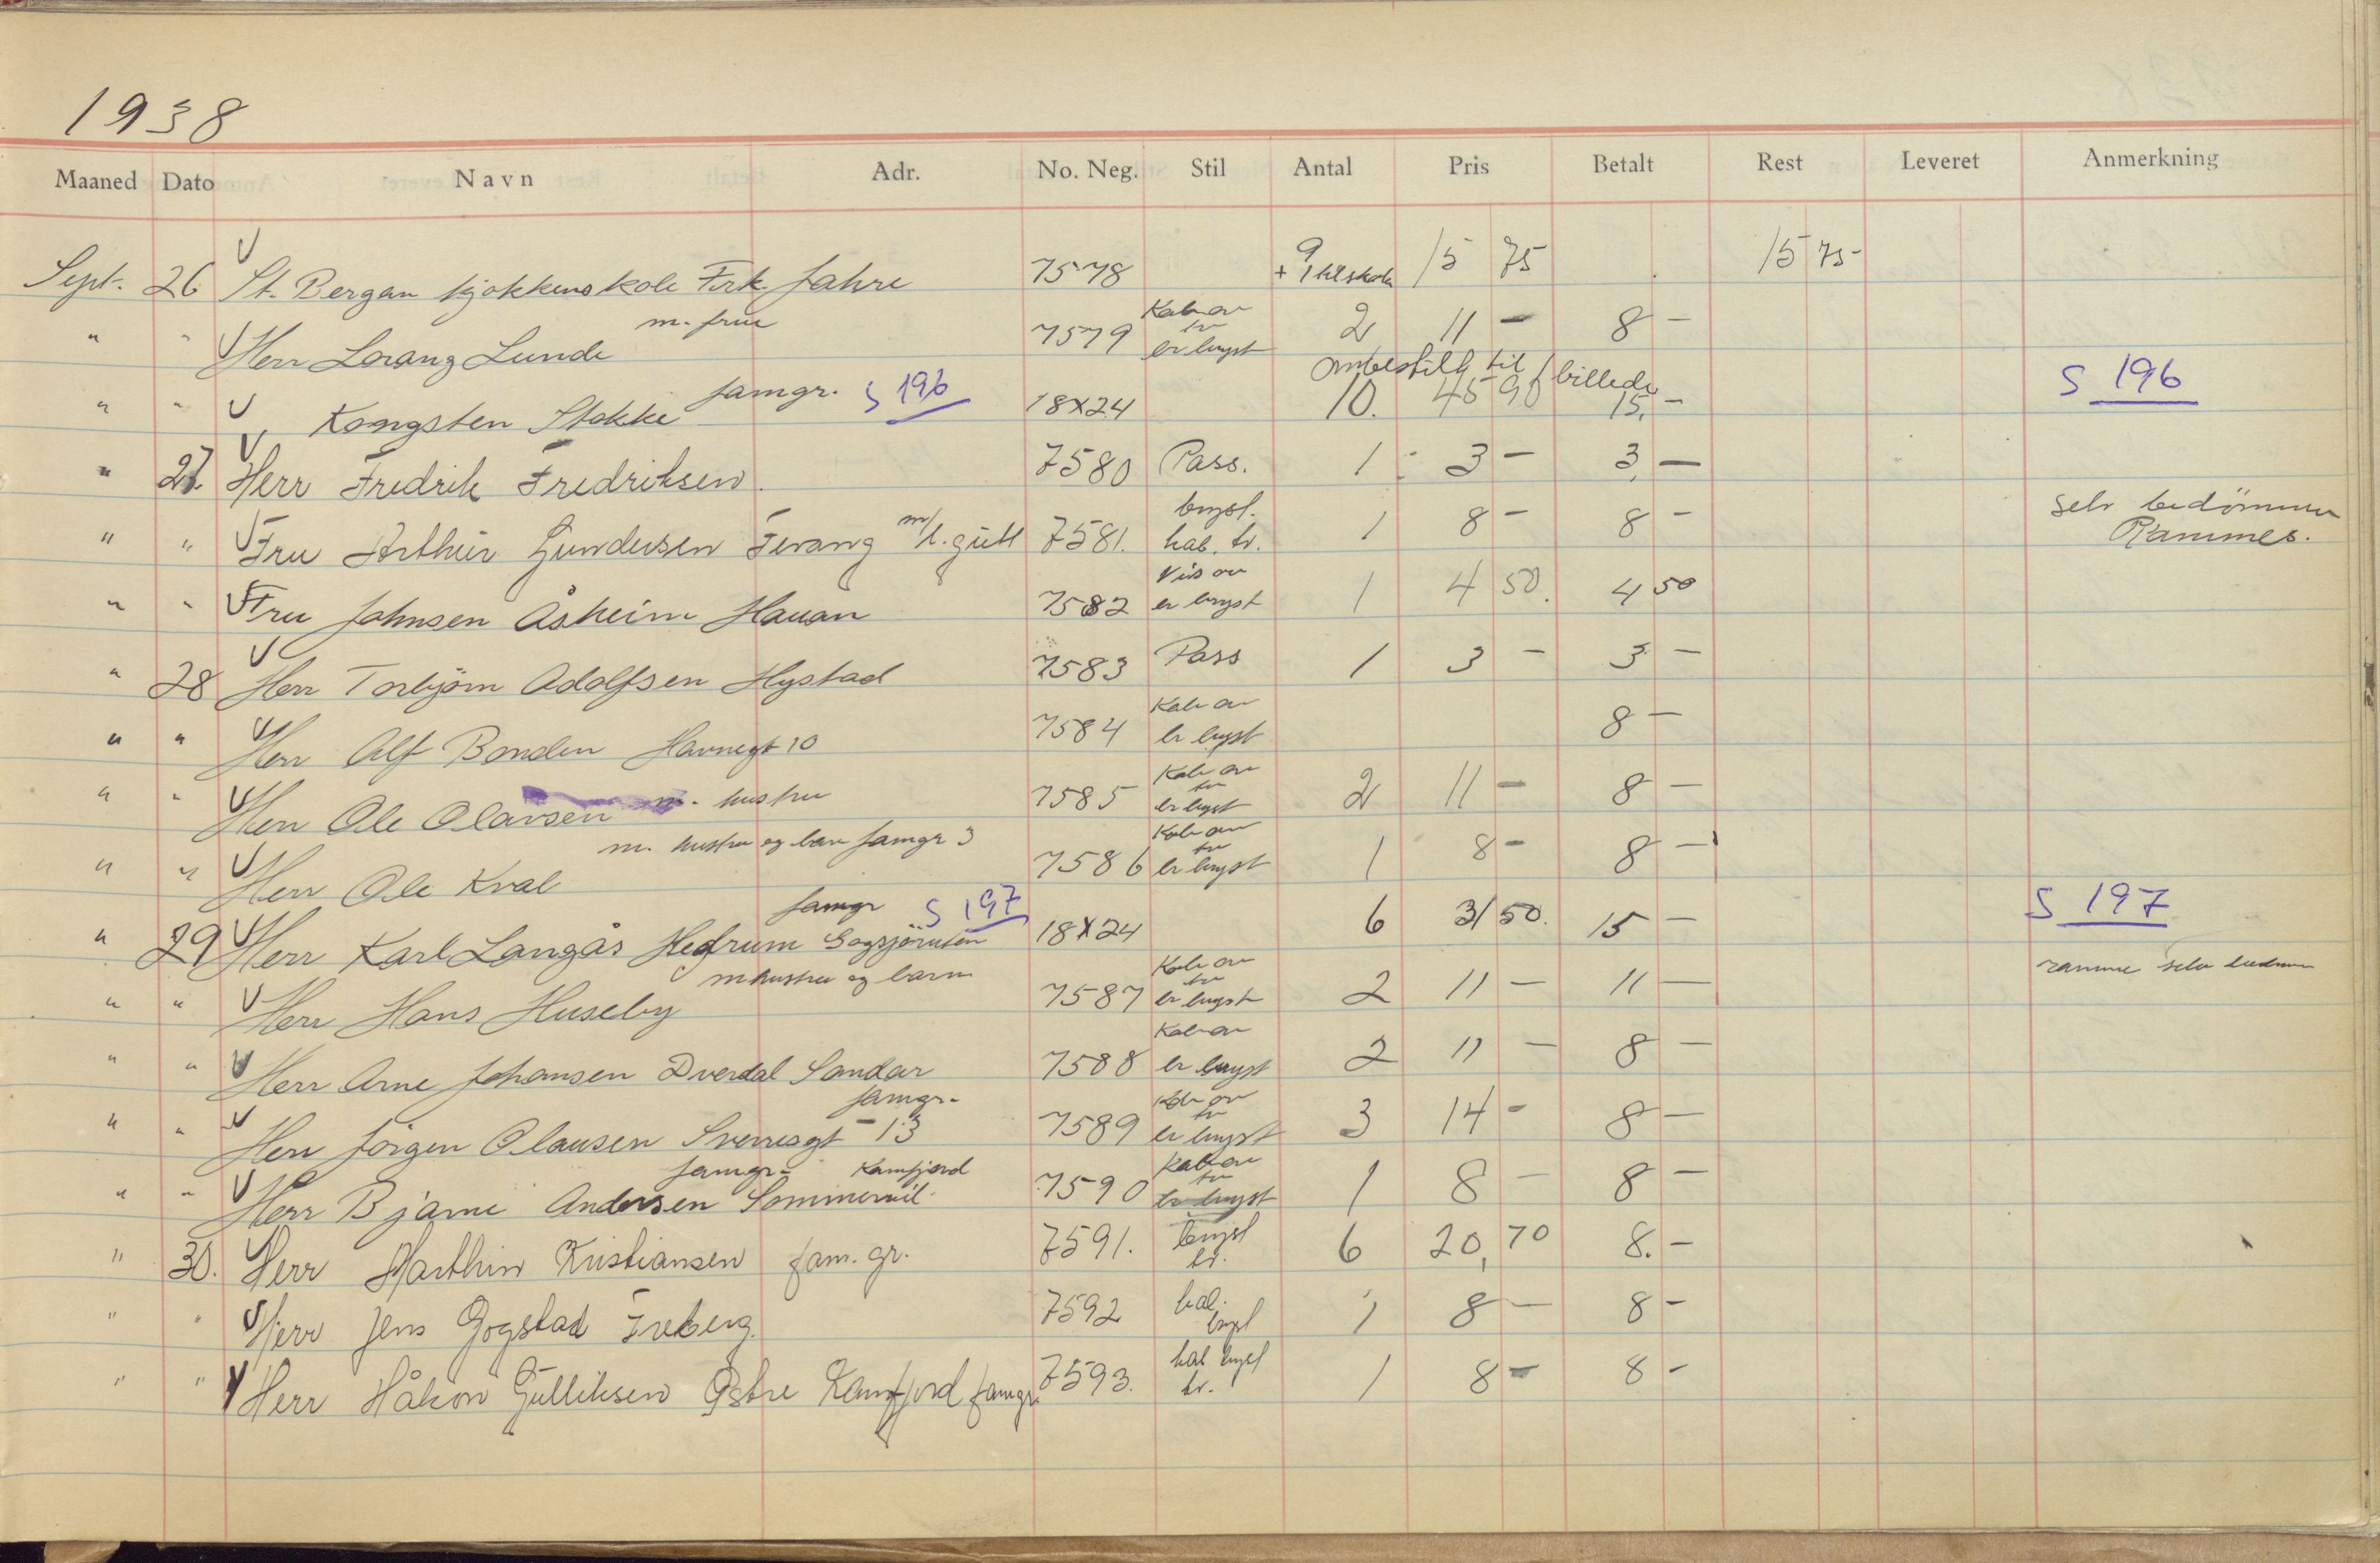 1938
Maaned Dato Navn Adr. No. Neg. Stil Antal Pris Betalt Rest Leveret Anmerkning
Sept. 26 V St. Bergan kjøkkenskole Frk. Jahre 7578 9 + 1 15 75 15 75-
" " V Herr Lorang Lunde m. frue 7579 Kab. av br er bryst 2 11 - 8 -
ombestilt til 1 billede
" " V Kongsten Stokke famgr. S 196 18x24 10. 45 90 15,- S 196
" 27. V Herr Fredrik Fredriksen. 7580 Pass. 1 3 - 3, -
" " V Fru Arthur Gundersen Tevang m/l. gutt 7581. bryst. kab. br. 1 8 - 8 - selv bedømmer Rammes.
" " V Fru Johnsen Åsheim Hauan 7582 Vis av er bryst 1 4 50. 4 50
" 28 V Herr Torbjørn Adolfsen Hystad 7583 Pass 1 3 - 3 -
" " V Herr Alf Bonden Havnegt 10 7584 Kab av er bryst 8 -
" " V Herr Ole Olavsen m. hustru 7585 Kab av br er bryst 2 11 - 8 -
" " V Herr Ole Kval m. hustru og barn famgr 3 7586 Kab av br er bryst 1 8 - 8 -
" 29 V Herr Karl Langås Hedrum famgr S 197 18x24 6 31 50. 15 - S 197
" " V Herr Hans Huseby m hustru og barn 7587 Kab av br er bryst 2 11 - 11 - ramme selv
" " V Herr Arne Johansen Dverdal Sandar 7588 Kab av er bryst 2 11 - 8 -
" " V Herr Jörgen Olausen Sverresgt 13 famgr- 7589 Kab av br er bryst 3 14 - 8 -
" " V Herr Bjarne Andersen famgr- Kamfjord 7590 Kab av br er bryst 1 8 - 8 -
" 30. V Herr Marthin Kristiansen fam. gr. 7591. bryst br. 6 20,70 8. -
" " V Herr Jens Gogstad Freberg. 7592 kab. bryst 1 8 - 8 -
" " V Herr Håkon Gulliksen Østre Kamfjord famgr. 7593. kab bryst br. 1 8 - 8 -